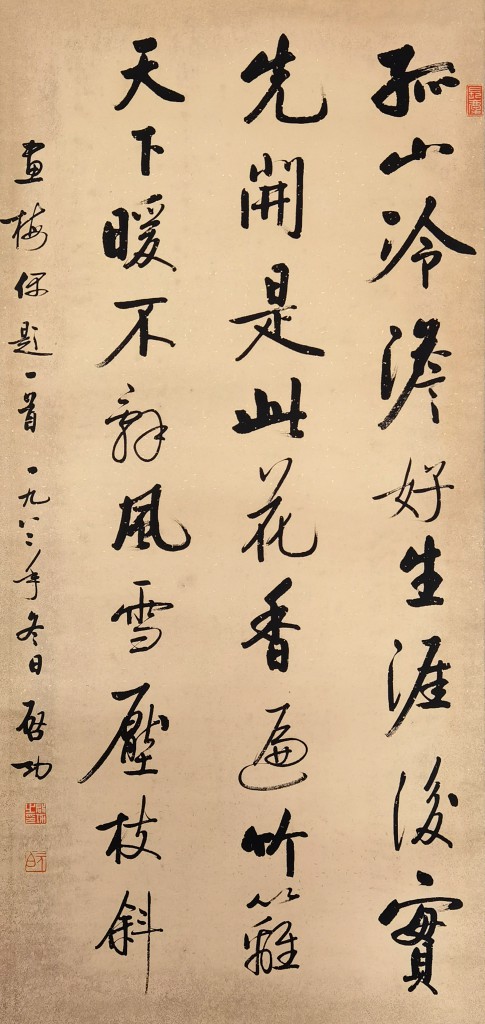 孤山冷澹好生涯後實
先開是此花香遍竹籬
天下暖不辭風雪壓枝斜
畫梅偶題一首一九八二年冬日啟功